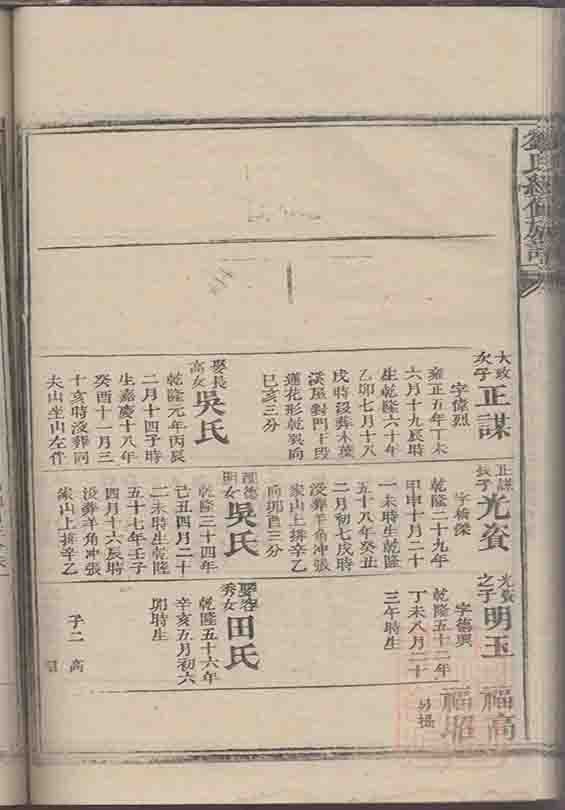 氏經修族譜
正謀
字偉烈
雍正五年丁未
六月十九辰時
生乾隆六十年
乙卯七月十八
戌時没葬木葉
溪屋對門王段
蓮花形乾巽向
巳亥三分
娶長
高女
吳氏
乾隆元年丙辰
二月十四子時
生嘉慶十八年
癸酉十一月三
十亥時没葬同
夫山坐山左件
正謀
長子
光資
字橋傑
乾隆二十九年
甲申十月二十
一未時生乾隆
五十八年癸丑
二月初七戌時
没葬羊角冲張
家山上排辛乙
向卯酉三分
吳氏
乾隆三十四年
己丑四月二十
二未時生乾隆
五十七年壬子
四月十六辰時
没葬羊角冲張
家山上排辛乙
光資
之子
明玉
字德興
乾隆五十二年
丁未八月二十
三午時生
秀女
田氏
乾隆五十六年
辛亥五月初六
卯時生
子二
高
福高
福昭